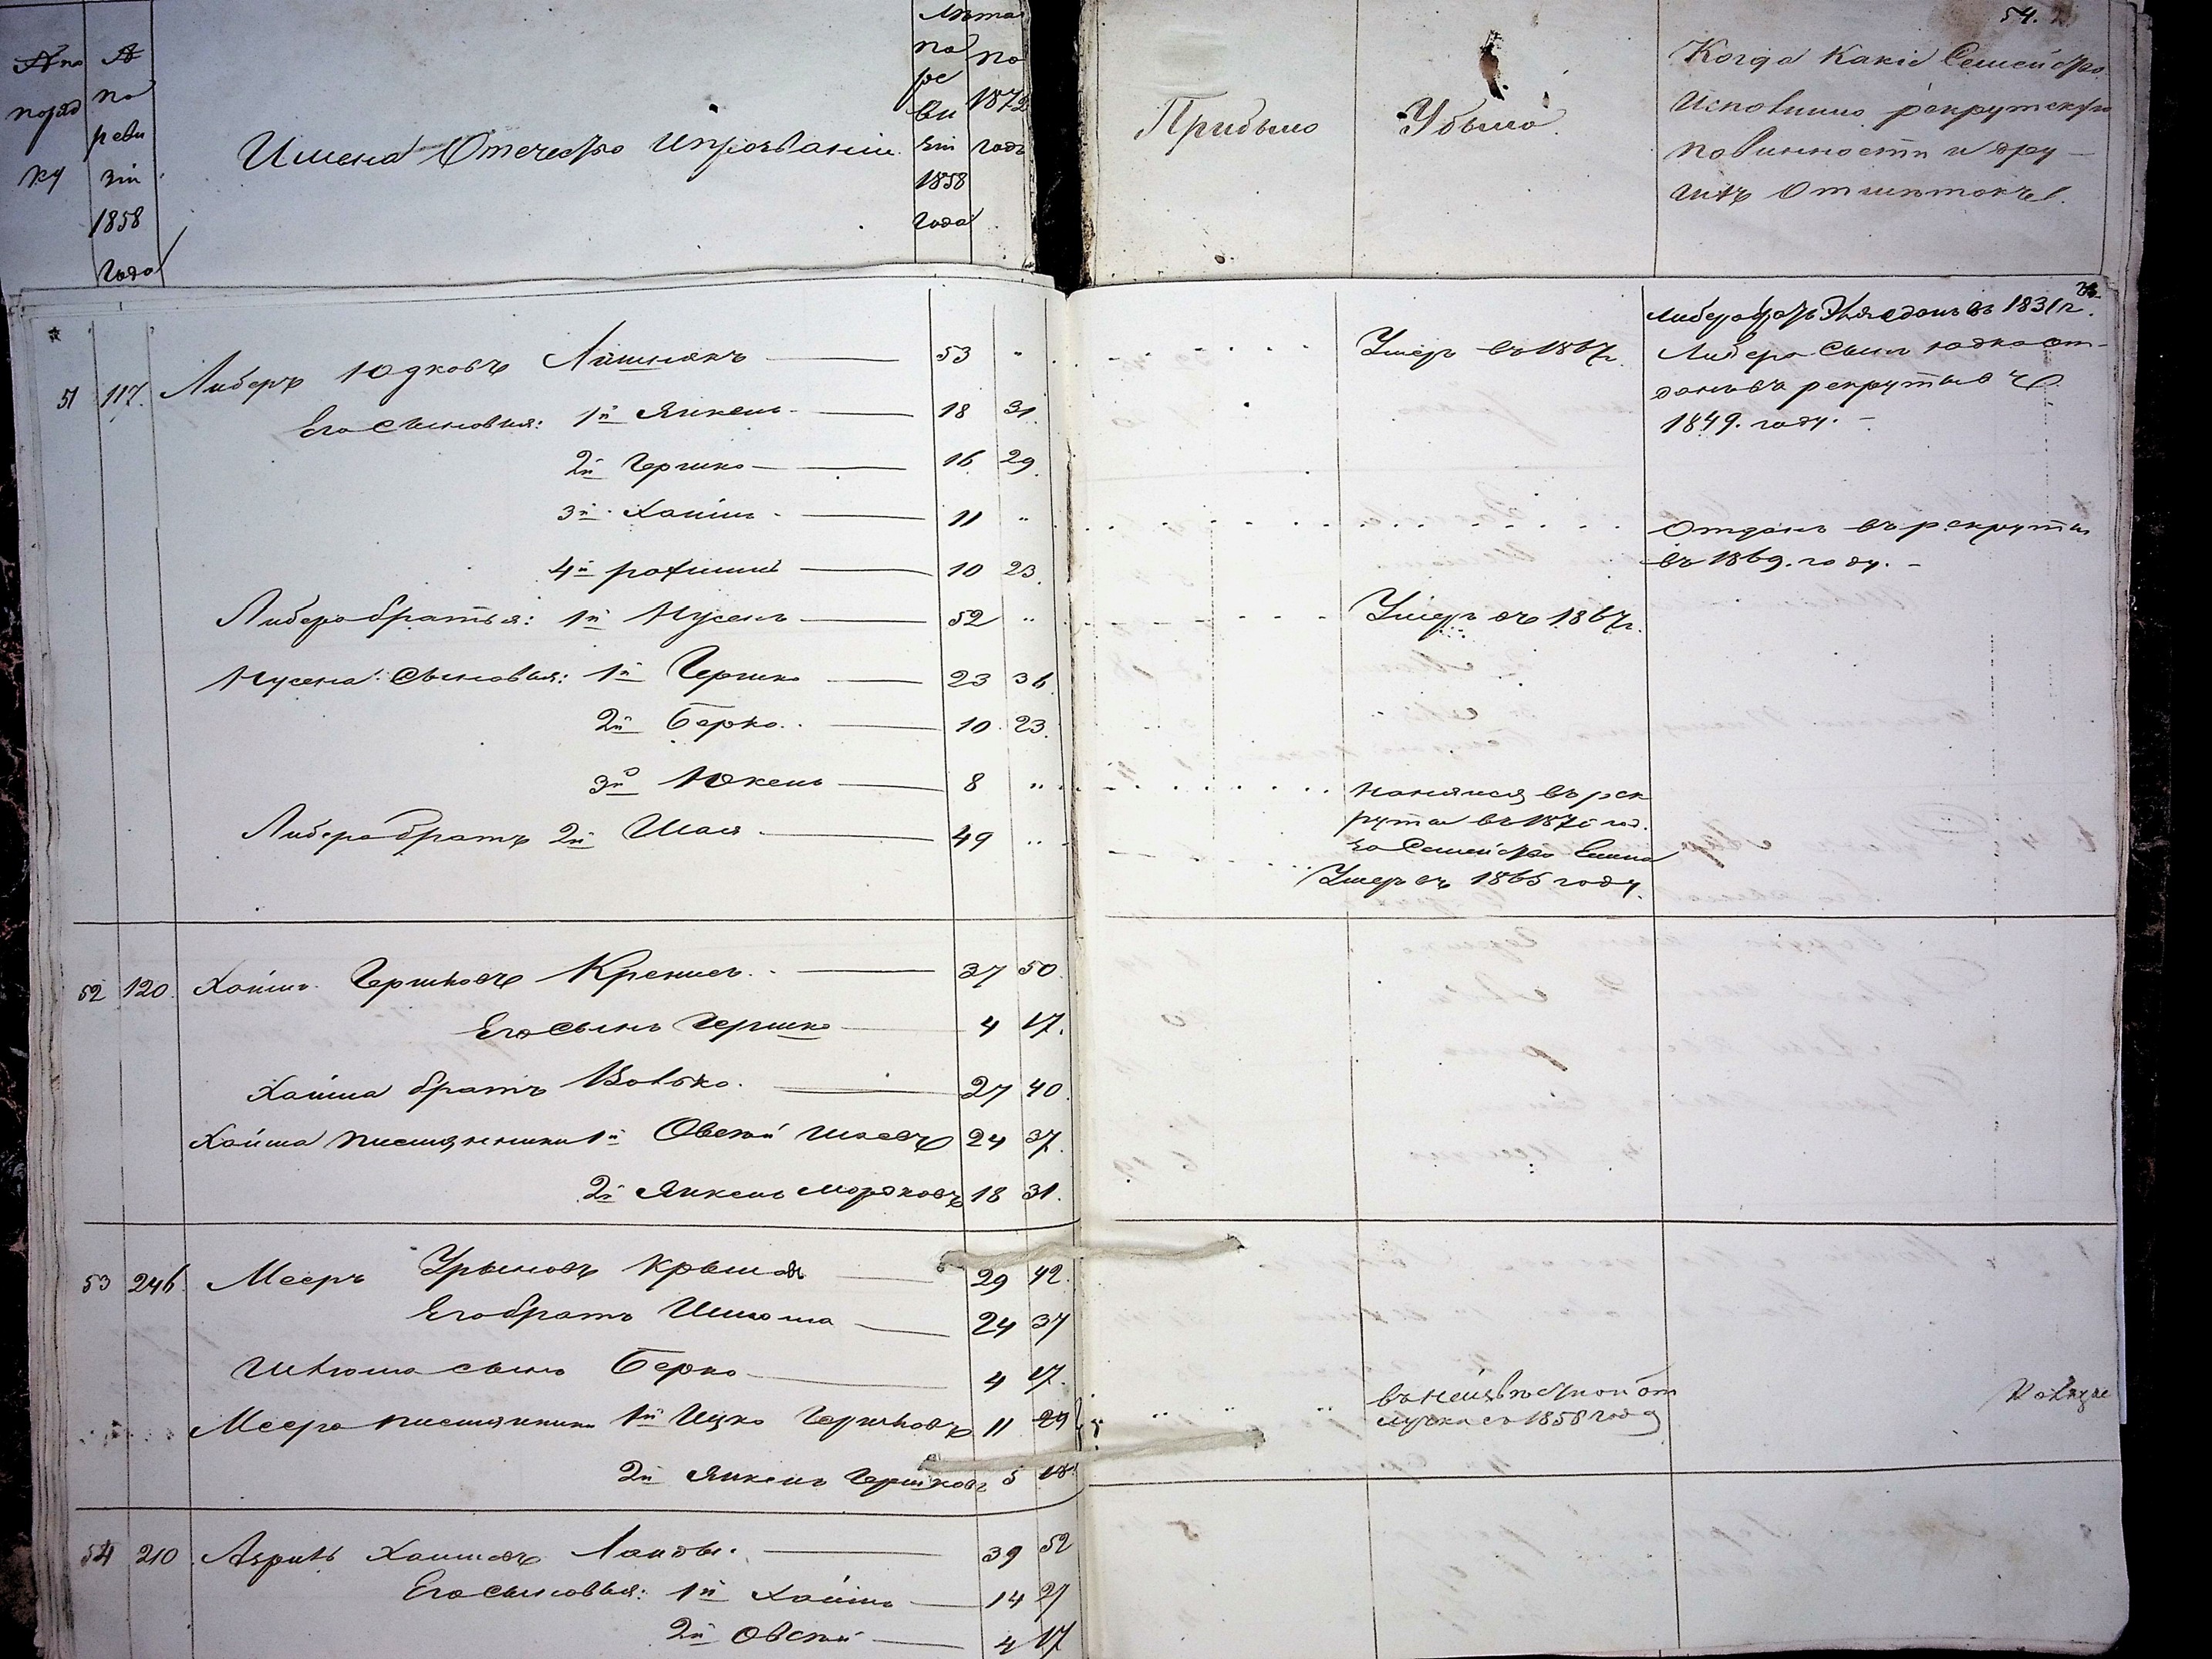 № по
поряд
ку
№
по
реви
зіи
1858
года
Имена Отчество ипрозваніи
Лѣта
по
ре
ви
зіи
1858
года
по
1872
годъ
Прибыло
Убыло.
54.
Когда какіе Семейство
Исполнило рекрутскую
повинности и дру-
гихъ Отмѣтокъ.
51 117. Либеръ Юдковъ 53 "
Умеръ въ 1867г.
Либера въ 1831г.
Либера сынъ Юдка от-
данъ въ рекруты въ
1849. году. -
Его сыновья: 1й Янкель 18 31
2й Гершко 16 29.
3й Хаимъ 11 "
Отданъ въ рекруты
въ 1869. году. -
4й 10 23.
Либера братья: 1й Нусенъ 52 "
Умеръ въ 1867г.
Нусена сыновья: 1й Гершко 23 36.
2й Берко 10 23.
3й Юкель 8 "
нанялся въ рек
руты въ 187 год.
за Семейство
Либера братъ 2й Шая 49 "
Умеръ въ 1865 году.
52 120. Хаимъ Гершковъ 37 50.
Его сынъ Гершко 4 17.
Хаима братъ Волько. 27 40.
Хаима племянники 1й Овсей 24 37.
2й ЯнкельМоржковъ 18 31.
53 246. Мееръ 29 42.
Его братъ 24 37
сынъ Берко 4 17.
Меера племянники 1й Ицко Гершковъ 11 29
въ неизвѣстной от
лучкѣ съ 1858 года
2й Янкель Гершковъ 5 18
54 210 Хаимовъ Ланды. 39 52
Его сыновья: 1й Хаимъ 14 27
2й Овсей 4 17